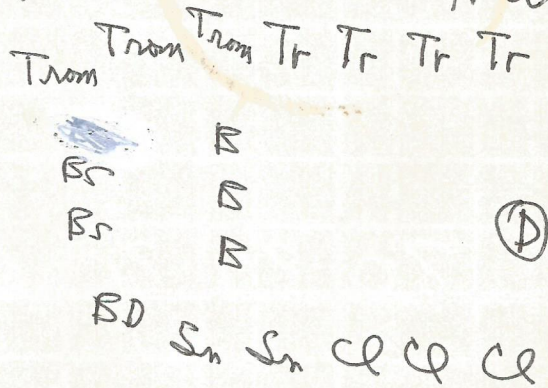 Trom Trom Trom Tr Tr Tr Tr
B
Bs B
Bs B D
BD Sn Sn Cl Cl Cl